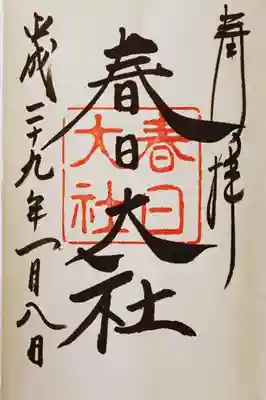 奉拝
春日大社
春日
大社
平成二十九年一月八日